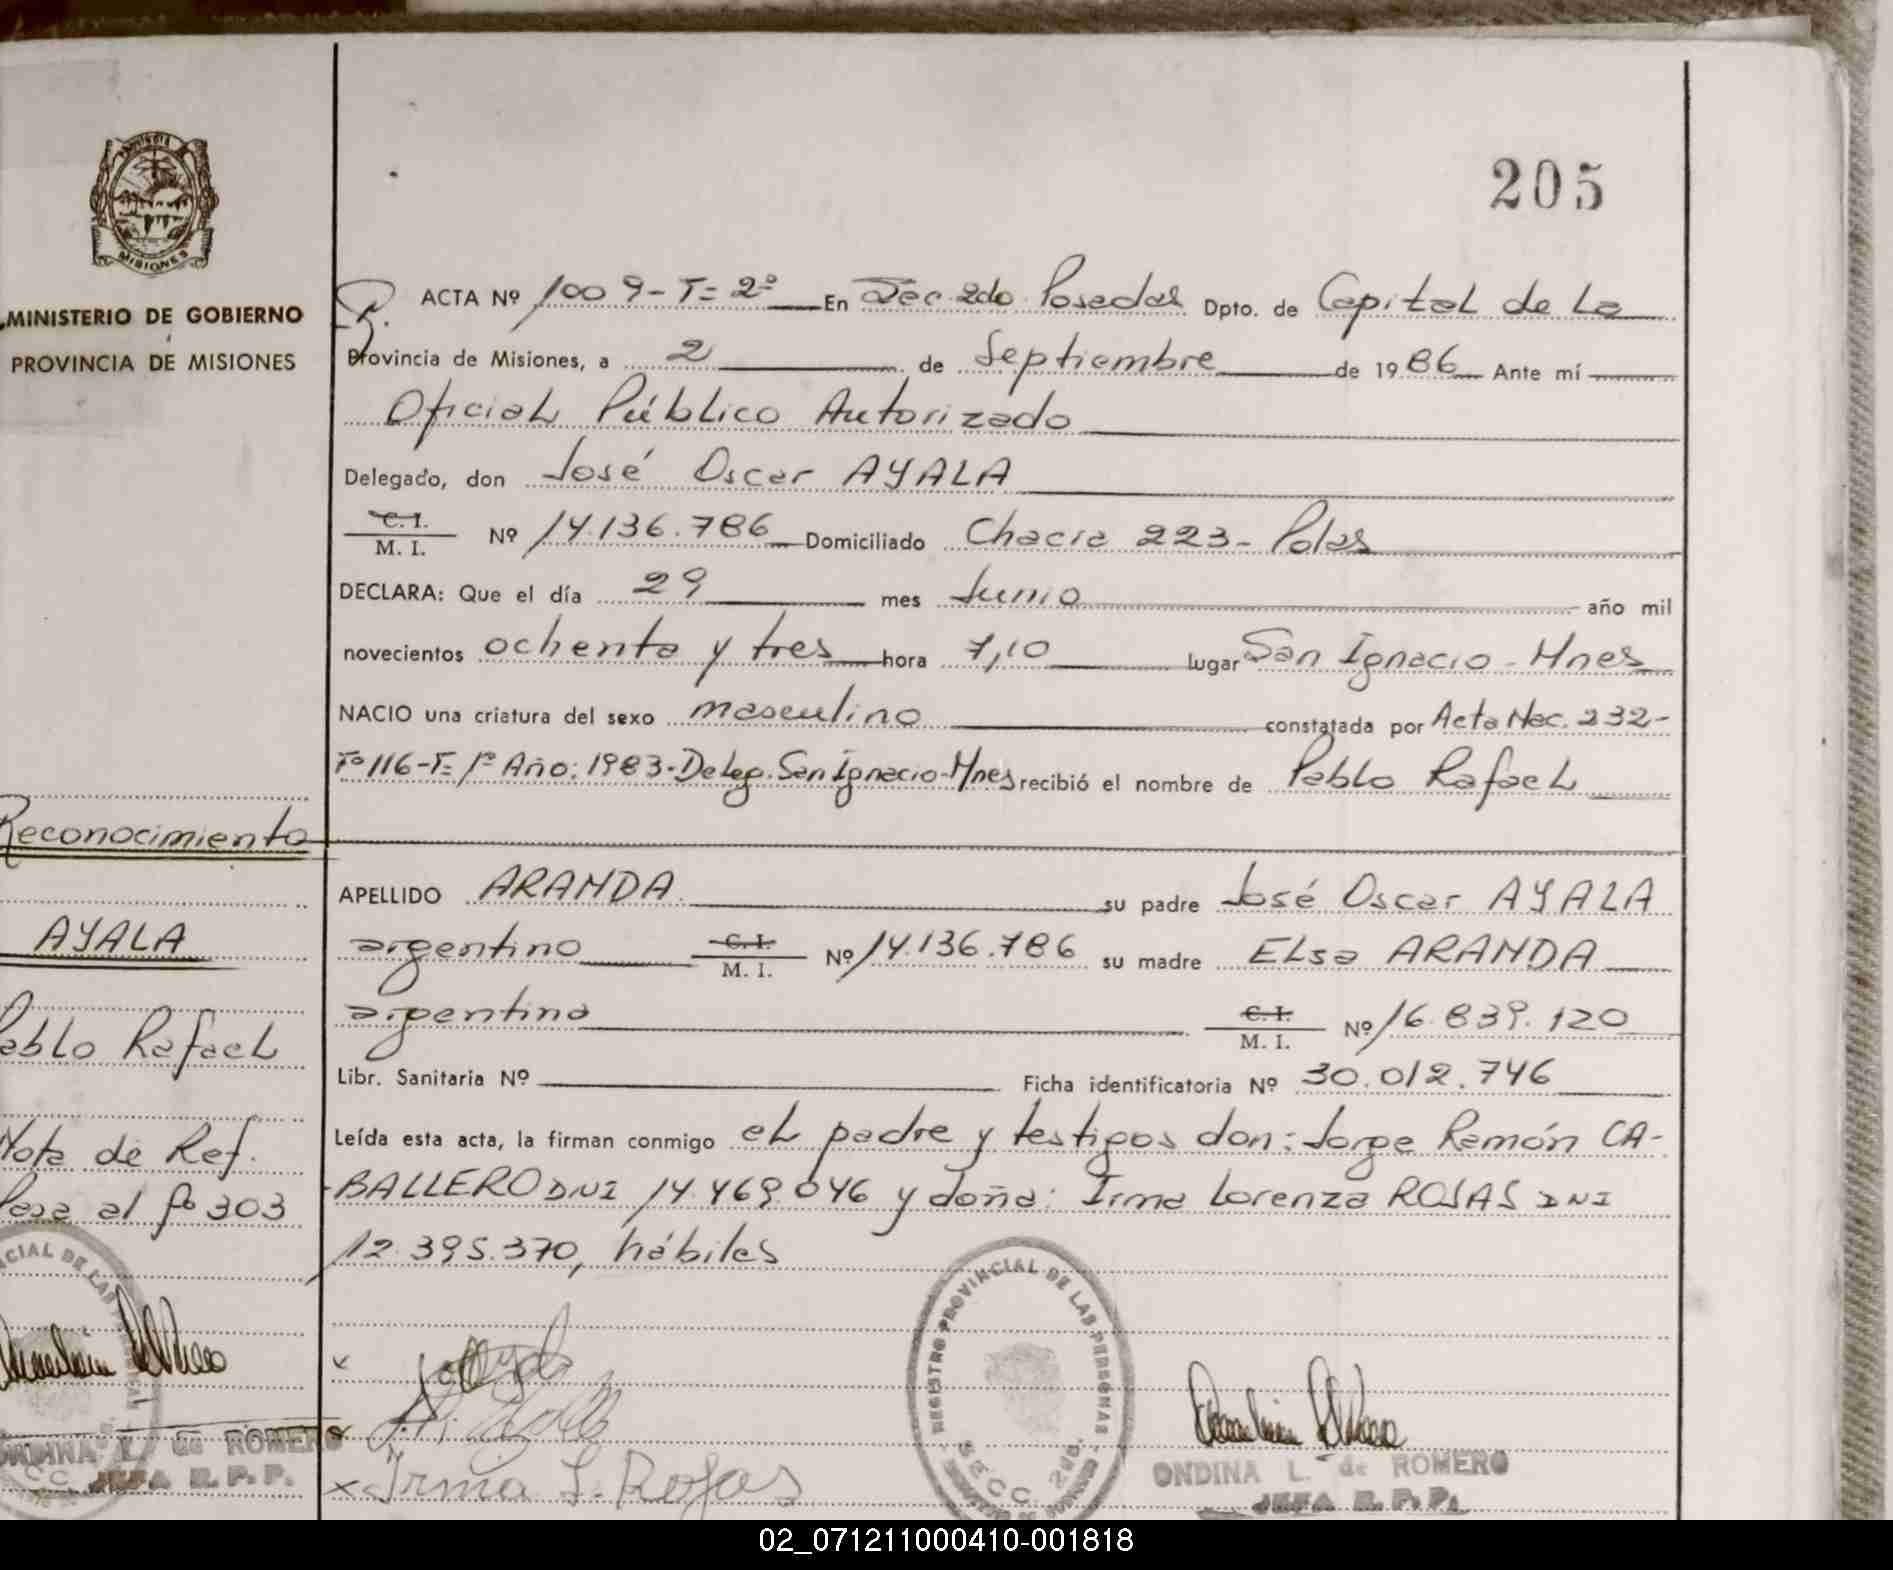 205
MINISTERIO DE GOBIERNO
PROVINCIA DE MISIONES
Reconocimiento
AYALA
Pablo Rafael
Nota de Ref.
Pasa al fº 303
ACTA Nº 1009-T= 2º En Sec. 2do Posadas Dpto. de Capital de La
Provincia de Misiones, a 2 de Septiembre de 1986 Ante mí
Oficial Público Autorizado
Delegado, don José Oscar AYALA
C. I. / M. I. Nº 14.136.786 Domiciliado Chacra 223- Pdas
DECLARA: Que el día 29 mes Junio año mil
novecientos ochenta y tres hora 7,10 lugar San Ignacio - Mnes
NACIO una criatura del sexo masculino constatada por Acta Nac. 232-
Fº 116-T= 1º Año: 1983-Deleg. San Ignacio-Mnes recibió el nombre de Pablo Rafael
APELLIDO ARANDA su padre José Oscar AYALA
argentino C. I. / M. I. Nº 14.136.786 su madre Elsa ARANDA
argentina C. I. / M. I. Nº 16.839.120
Libr. Sanitaria Nº Ficha identificatoria Nº 30.012.746
Leída esta acta, la firman conmigo el padre y testigos don: Jorge Ramón CA-
BALLERO DNI 14.469.046 y doña: Irma Lorenza ROJAS DNI
12.395.370, hábiles
Irma L. Rojas
REGISTRO PROVINCIAL DE LAS PERSONAS
SECC 2da.
ONDINA L. de ROMERO
JEFA R. P. P.
ONDINA L. de ROMERO
JEFA R. P. P.
02_071211000410-001818